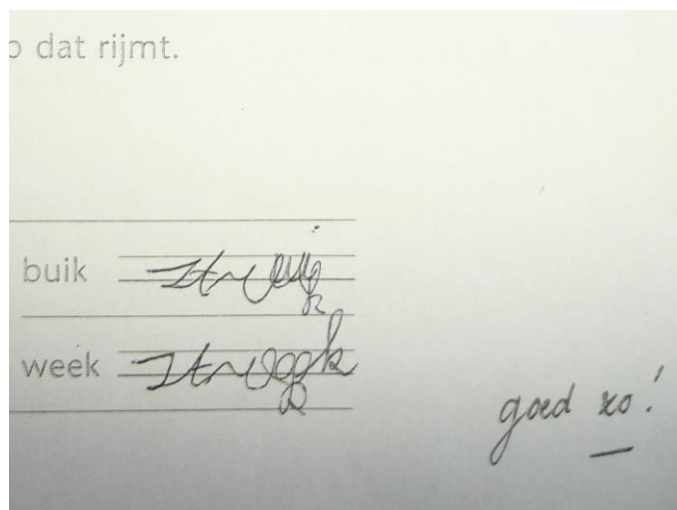 dat rijmt.
buik struik
week streek
goed zo!